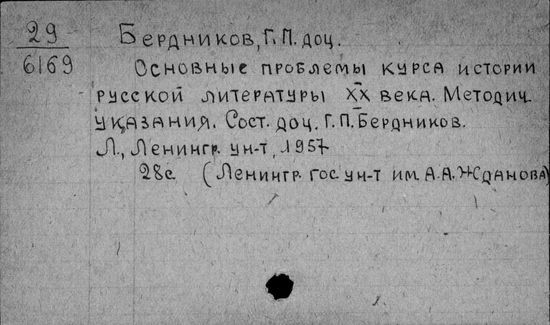 29
6169
Бердников, Г. П. доц.
Основные проблемы курса истории
русской литературы XX века. Методич.
указания. Сост. доц. Г. П. Бердников.
Л., Ленингр. ун-т, 1957
28с. (Ленингр. гос. ун-т им. А. А. Жданова)